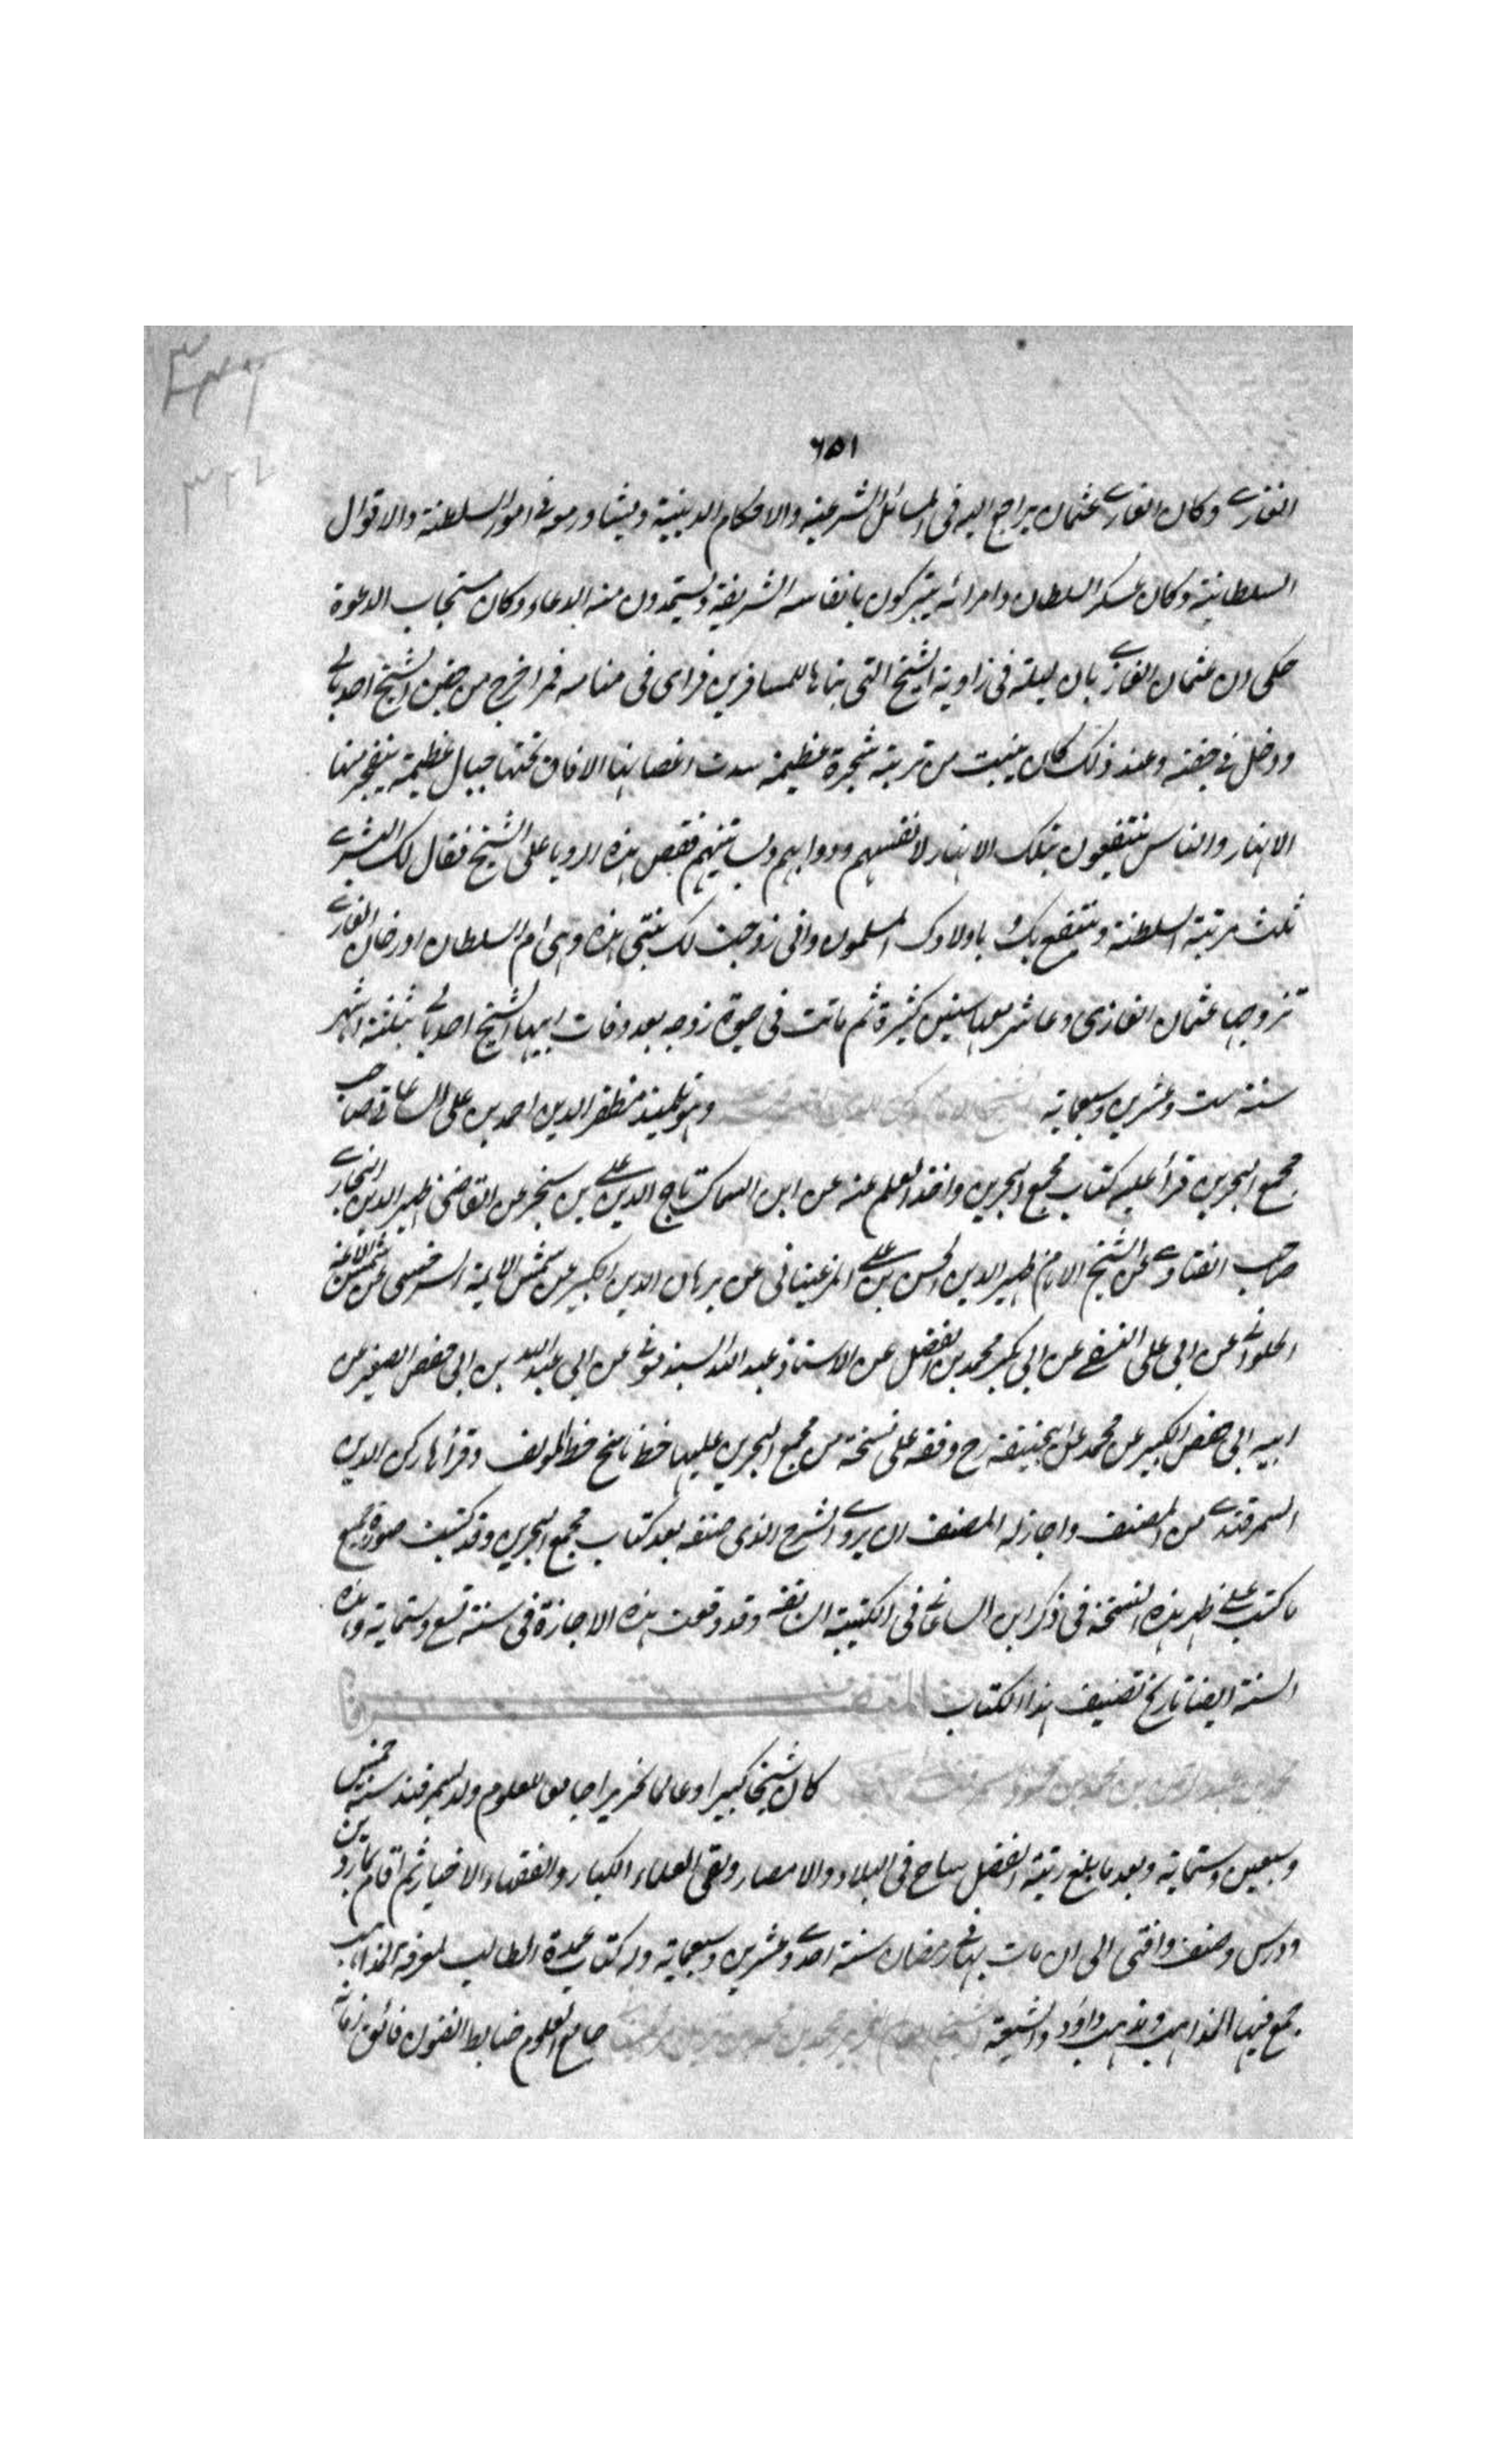 ٦٥١
الغازى وكان الغازى عثمان يراجع اليه فى المسائل الشرعية والاحكام الدينية ويشاور معه فى امور السلطنة والاقوال
السلطانية وكان عسكر السلطان وامرائه يتبركون بانفاسه الشريفة ويستمدون منه الدعاء وكان مستجاب الدعوة
حكى ان عثمان الغازى بات ليلة فى زاوية الشيخ التى بناها للمسافرين فراى فى منامه قمرا خرج من حضن الشيخ اده بالى
ودخل فى حضنه وعند ذلك كان ينبت من تربته شجرة عظيمة سدت اغصانها الافاق تحتها جبال عظيمة يتفجر منها
الانهار والناس ينتفعون بتلك الانهار لانفسهم ودوابهم وبساتينهم فقص هذه الرويا على الشيخ فقال لك البشرى
نلت مرتبة السلطنة وينتفع بك باولادك المسلمون وانى زوجت لك بنتى هذه وهى ام السلطان اورخان الغازى
تزوجها عثمان الغازى وعاشر معها سنين كثيرة ثم ماتت فى حيوة زوجه بعد وفات ابيها الشيخ اده بالى بثلثة اشهر
سنة ست وعشرين وسبعماية وهو تلميذ مظفر الدين احمد بن على الساعاتى صاحب
مجمع البحرين قرأ عليه كتاب مجمع البحرين واخذ العلم عنه عن ابن السماك تاج الدين على بن سنجر عن القاضى ظهير الدين البخارى
صاحب الفتاوى عن الشيخ الامام ظهير الدين الحسن بن على المرغينانى عن برهان الدين الكبير عن شمس الايمة السرخسى عن شمس الائمة
الحلوانى عن ابى على النسفى عن ابى بكر محمد بن الفضل عن الاستاذ عبد الله السبذمونى عن ابى عبد الله بن ابى حفص الصغير عن
ابيه ابى حفص الكبير عن محمد عن ابى حنيفة رح وقفه على نسخة من مجمع البحرين عليها خط ناسخ خط المولف وقرأها ركن الدين
السمرقندى من المصنف واجاز له المصنف ان يروى الشرح الذى صنفه بعد كتاب مجمع البحرين وقد كتبت صورة جميع
ما كتب على ظهر هذه النسخة فى ذكر ابن الساعاتى فى الكتيبة السابقة وقد وقعت هذه الاجازة فى سنة تسع وستماية وهذه
السنة ايضا تاريخ تصنيف هذا الكتاب
كان شيخا كبيرا وعالما نحريرا جامع العلوم ولد بسمرقند سنة خمس
وسبعين وستماية وبعد ما بلغ رتبة الفضل ساح فى البلاد والامصار ولقى العلماء الكبار والفقهاء الاخيار ثم اقام بماردين
ودرس وصنف وافتى الى ان مات بها فى رمضان سنة احدى وعشرين وسبعماية وله كتاب عمدة الطالب لمعرفة المذاهب
جمع فيها المذاهب ومذهب داود والشيعة جامع العلوم ضابط الفنون فائق زمانه